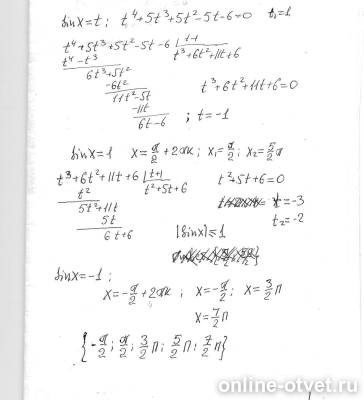 sinx=t; t⁴+5t³+5t²-5t-6=0 t₁=1
t⁴+5t³+5t²-5t-6 | t-1
t⁴-t³ t³+6t²+11t+6
6t³+5t²
-6t² t³+6t²+11t+6=0
11t²-5t
-11t
6t-6 ; t=-1
sinx=1 x=π/2+2πk; x₁=π/2; x₂=5/2π
t³+6t²+11t+6 | t+1 t²+5t+6=0
t² t²+5t+6
5t²+11t t=-3
5t t₂=-2
6t+6 |sinx|≤1
sinx=-1;
x=-π/2+2πk; x=-π/2; x=3/2π
x=7/2π
{-π/2; π/2; 3/2π; 5/2π; 7/2π}
online-otvet.ru